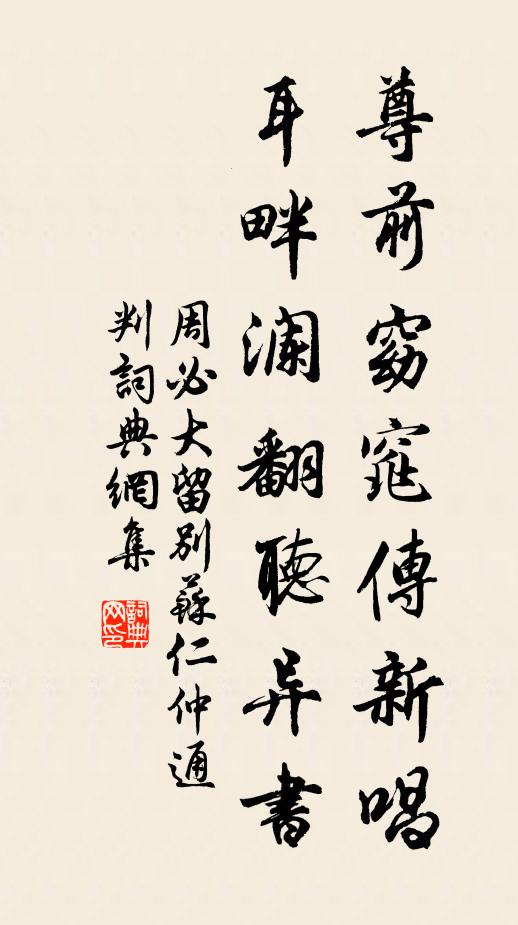 尊前窈窕傳新唱
耳畔瀾翻聽异書
周必大留別蘇仁仲通
判詞典網集
詞典网印